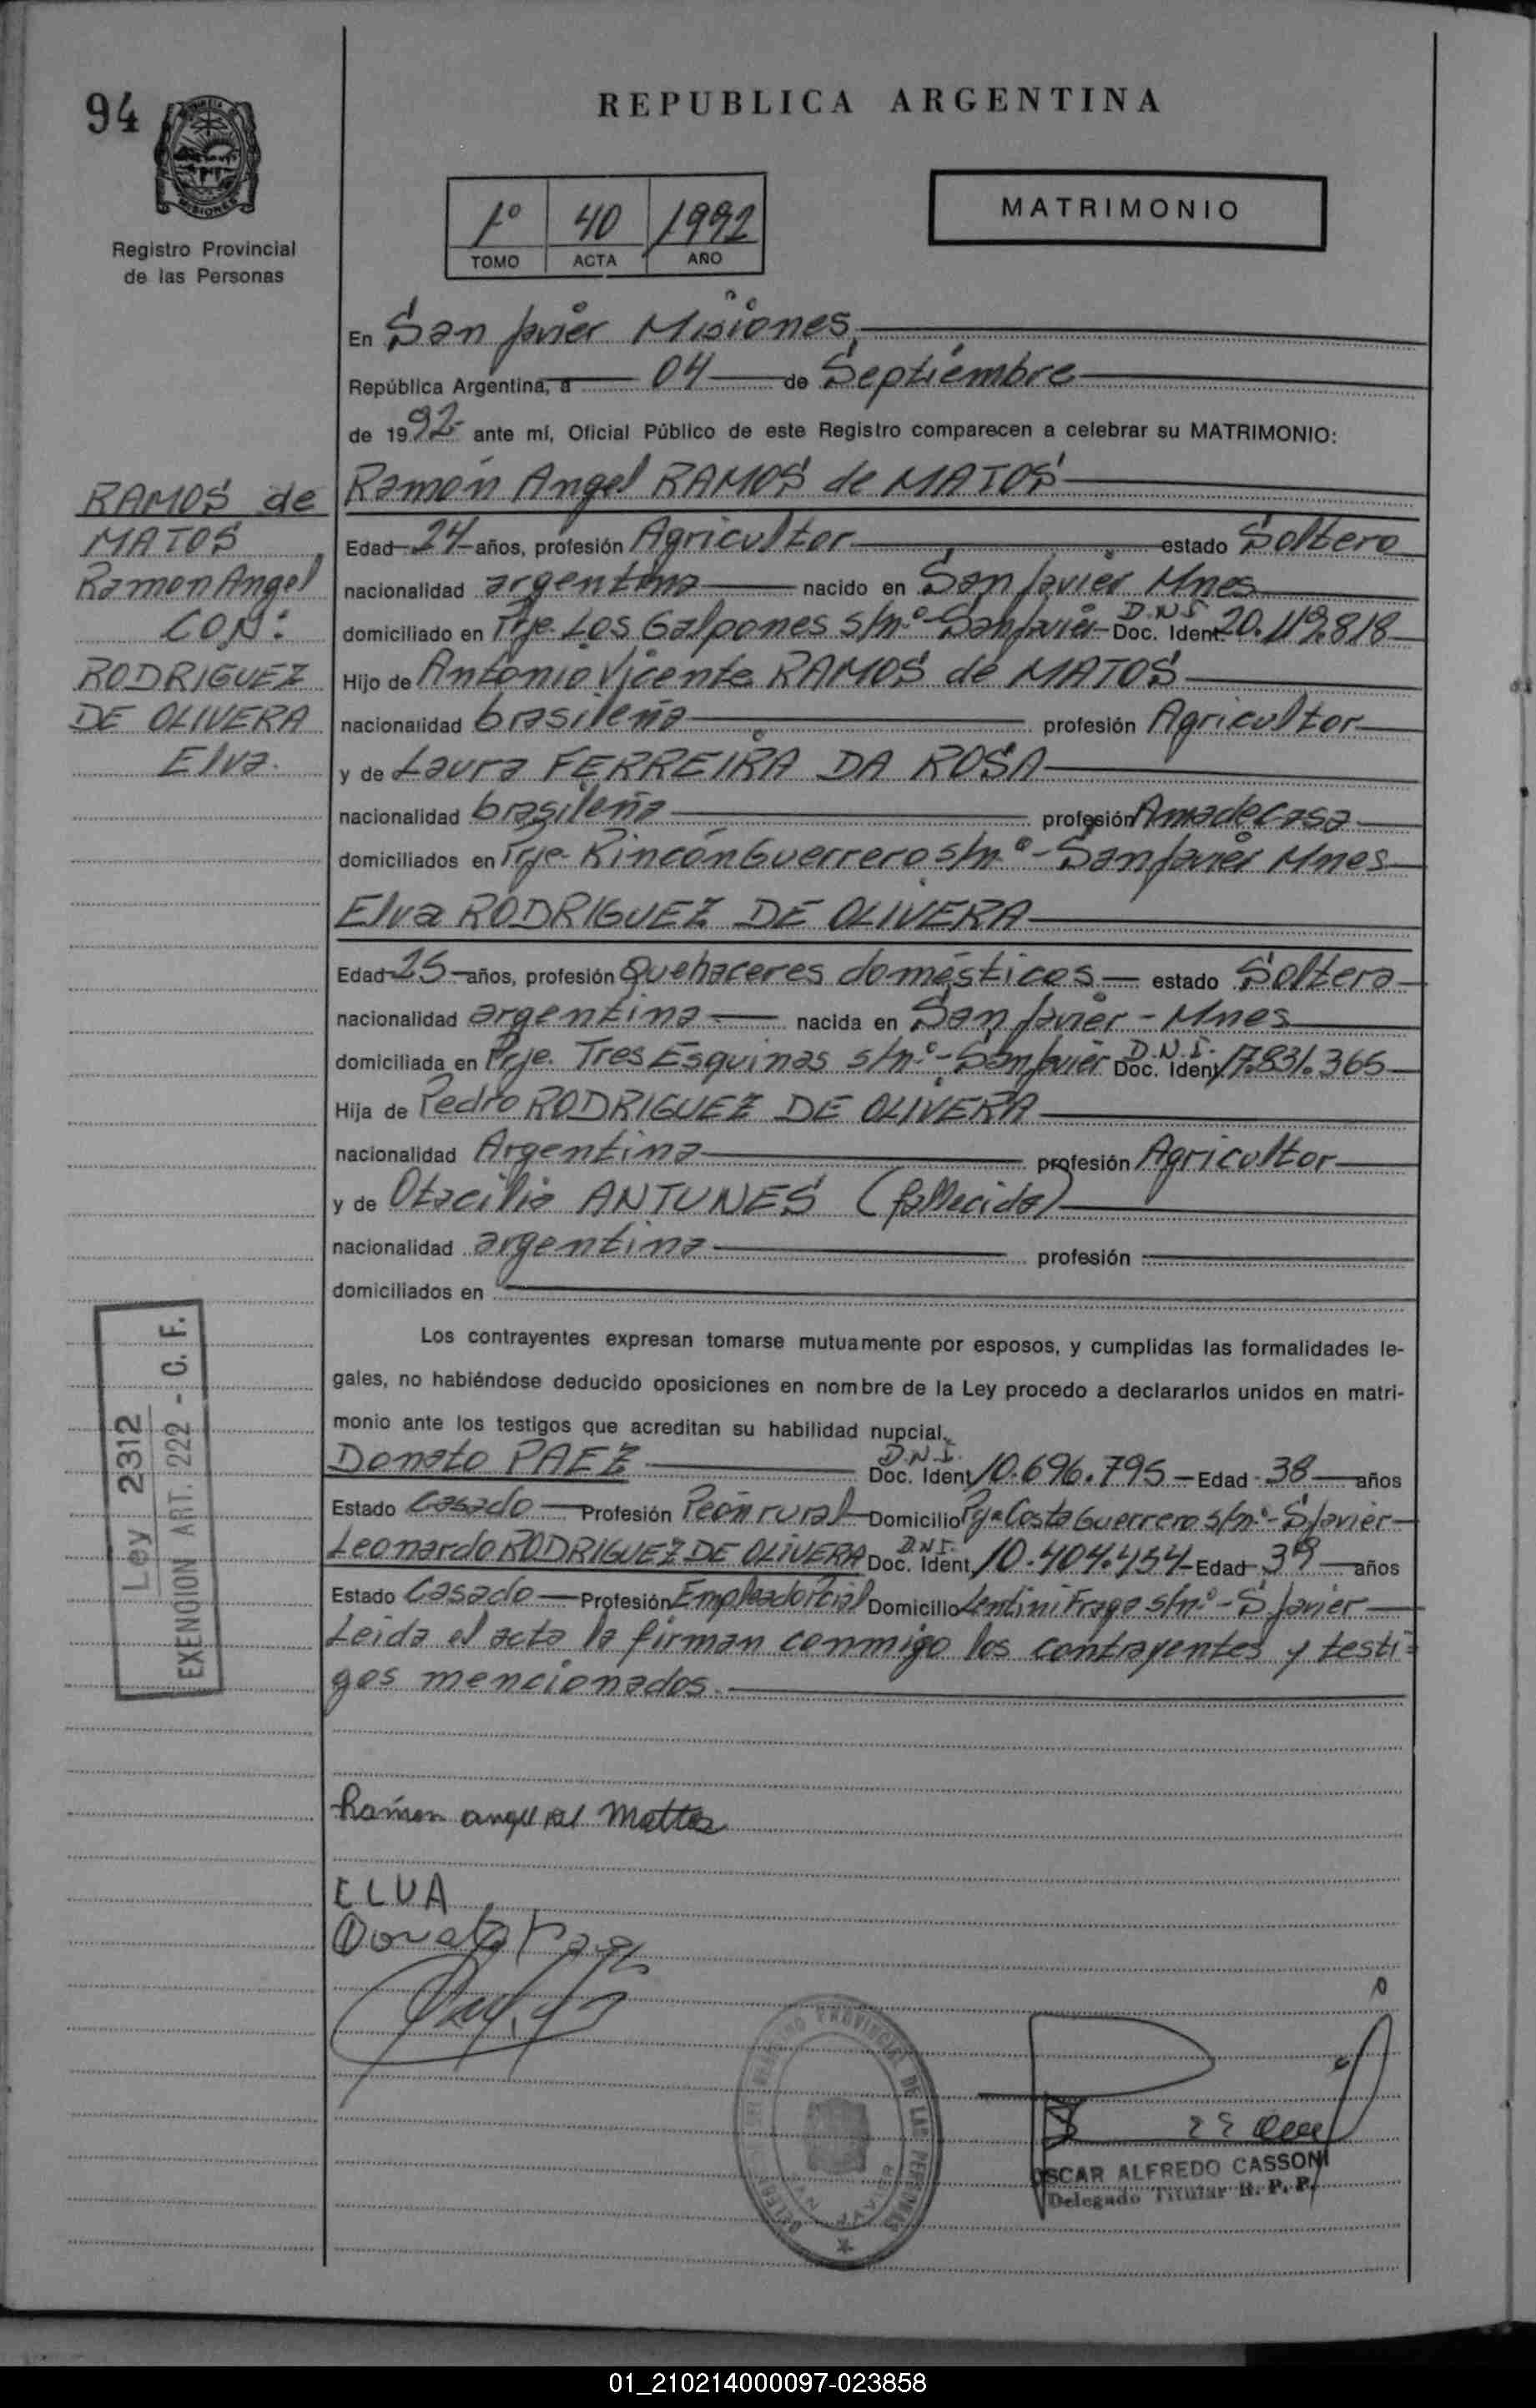 94
REPUBLICA ARGENTINA
MISIONES
Registro Provincial
de las Personas
1º 40 1992
TOMO ACTA AÑO
MATRIMONIO
En San Javier Misiones,
República Argentina, a 04 de Septiembre
de 1992- ante mí, Oficial Público de este Registro comparecen a celebrar su MATRIMONIO:
RAMOS de
MATOS
Ramon Angel
CON:
RODRIGUEZ
DE OLIVERA
Elva.
Ramón Angel RAMOS de MATOS
Edad 24 años, profesión Agricultor estado Soltero
nacionalidad argentina nacido en San Javier Mnes
domiciliado en Pje. Los Galpones s/nº - San Javier D.N.I. Doc. Ident. 20.119.818
Hijo de Antonio Vicente RAMOS de MATOS
nacionalidad brasileña profesión Agricultor
y de Laura FERREIRA DA ROSA
nacionalidad brasileña profesión Ama de Casa
domiciliados en Pje. Rincón Guerrero s/nº - San Javier Mnes
Elva RODRIGUEZ DE OLIVERA
Edad 25 años, profesión Quehaceres domésticos estado Soltera
nacionalidad argentina nacida en San Javier - Mnes
domiciliada en Prje. Tres Esquinas s/nº - San Javier D.N.I. Doc. Ident. 17.831.365
Hija de Pedro RODRIGUEZ DE OLIVERA
nacionalidad Argentina profesión Agricultor
y de Otacilia ANTUNES (fallecida)
nacionalidad argentina profesión
domiciliados en
Los contrayentes expresan tomarse mutuamente por esposos, y cumplidas las formalidades le-
gales, no habiéndose deducido oposiciones en nombre de la Ley procedo a declararlos unidos en matri-
monio ante los testigos que acreditan su habilidad nupcial.
Donato PAEZ D.N.I. Doc. Ident. 10.696.795 Edad 38 años
Estado Casado Profesión Peón rural Domicilio Pje Costa Guerrero s/nº - S Javier
Leonardo RODRIGUEZ DE OLIVERA D.N.I. Doc. Ident. 10.404.454 Edad 39 años
Estado Casado Profesión Empleado Pcial Domicilio Lentini Fraga s/nº - S Javier
Leida el acta la firman conmigo los contrayentes y testi=
gos mencionados.
Ley 2312
EXENCION ART. 222 - C. F.
Ramon angel Mattos
ELVA
Donato Paez
REGISTRO PROVINCIAL DE LAS PERSONAS
OSCAR ALFREDO CASSONI
Delegado Titular R. P. P.
01_210214000097-023858